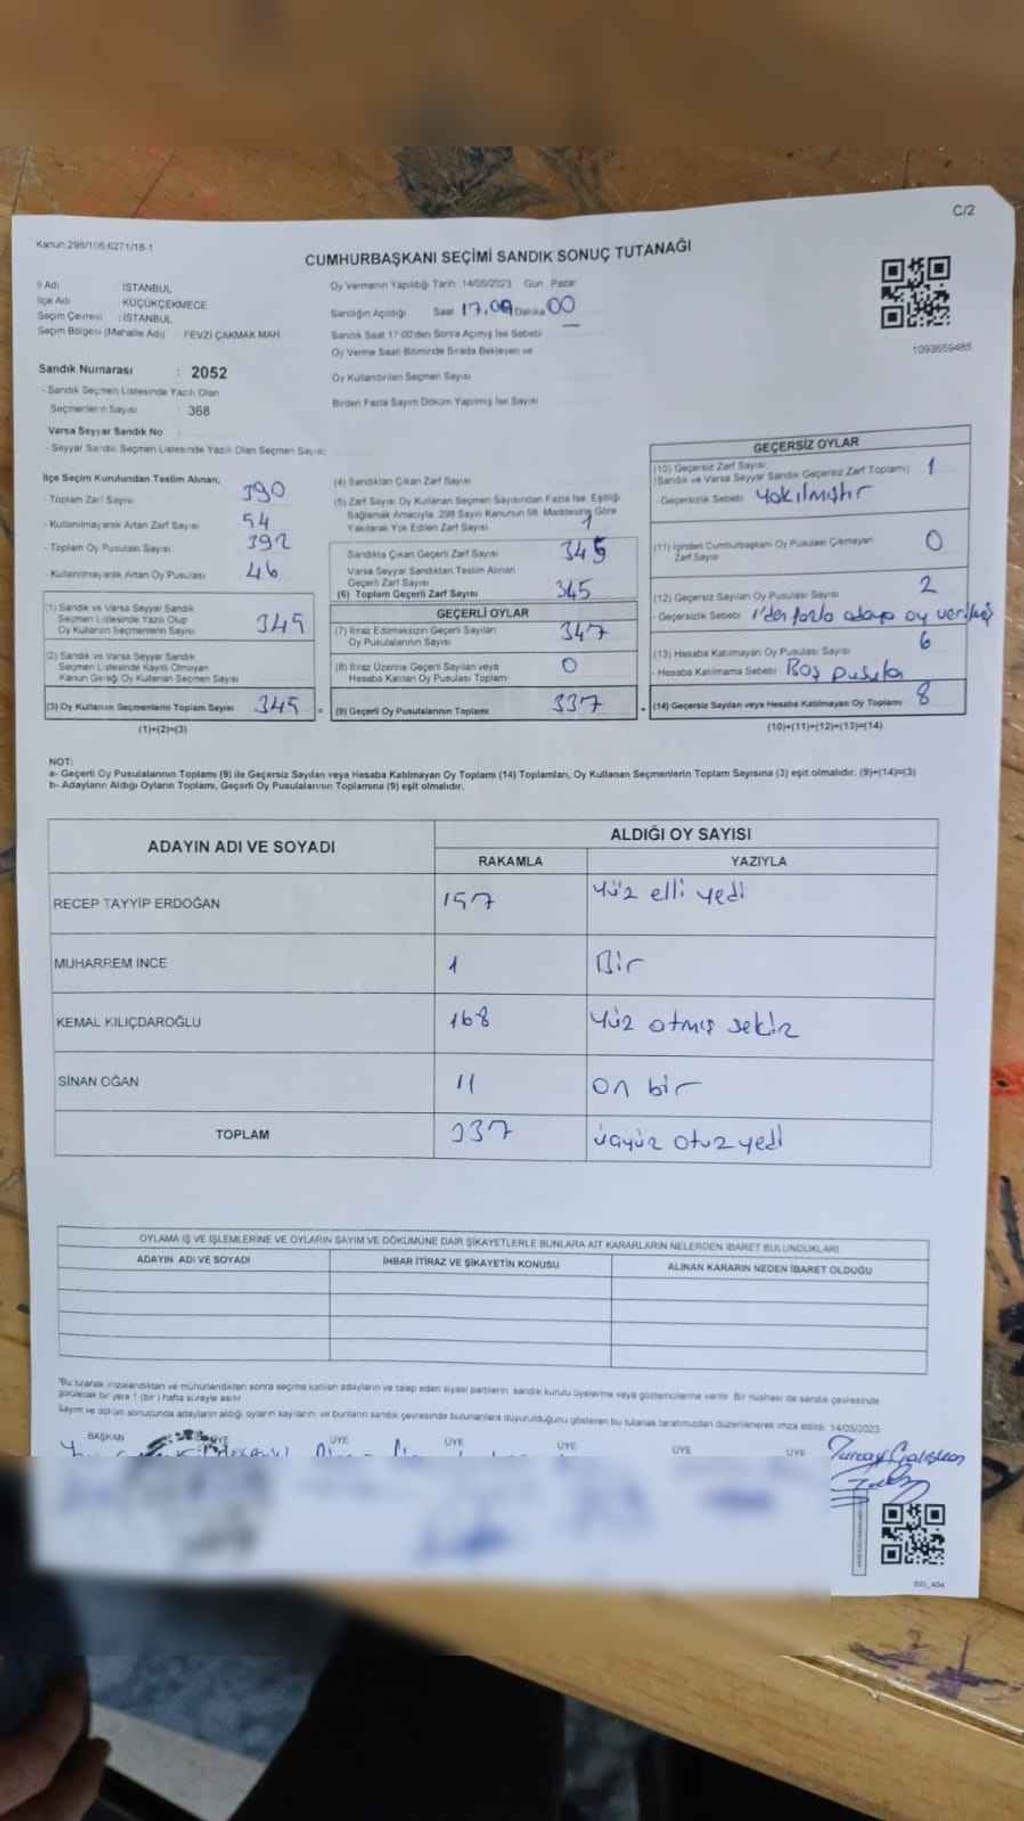 C/2
Kanun:298/105;6271/18-1
CUMHURBAŞKANI SEÇİMİ SANDIK SONUÇ TUTANAĞI
İl Adı İSTANBUL
İlçe Adı KÜÇÜKÇEKMECE
Seçim Çevresi : İSTANBUL
Seçim Bölgesi (Mahalle Adı) FEVZİ ÇAKMAK MAH.
Oy Vermenin Yapıldığı Tarih: 14/05/2023 Gün: Pazar
Sandığın Açıldığı Saat 17,00 Dakika 00
Sandık Saat 17:00'den Sonra Açılmış İse Sebebi
Oy Verme Saati Bitiminde Sırada Bekleyen ve
Oy Kullandırılan Seçmen Sayısı
Birden Fazla Sayım Döküm Yapılmış İse Sayısı
1093659485
Sandık Numarası : 2052
- Sandık Seçmen Listesinde Yazılı Olan
Seçmenlerin Sayısı : 368
Varsa Seyyar Sandık No
- Seyyar Sandık Seçmen Listesinde Yazılı Olan Seçmen Sayısı:
İlçe Seçim Kurulundan Teslim Alınan;
- Toplam Zarf Sayısı 390
- Kullanılmayarak Artan Zarf Sayısı 54
- Toplam Oy Pusulası Sayısı 392
- Kullanılmayarak Artan Oy Pusulası 46
(1) Sandık ve Varsa Seyyar Sandık
Seçmen Listesinde Yazılı Olup
Oy Kullanan Seçmenlerin Sayısı 345
(2) Sandık ve Varsa Seyyar Sandık
Seçmen Listesinde Kayıtlı Olmayan
Kanun Gereği Oy Kullanan Seçmen Sayısı
(3) Oy Kullanan Seçmenlerin Toplam Sayısı 345 =
(1)+(2)=(3)
(4) Sandıktan Çıkan Zarf Sayısı
(5) Zarf Sayısı Oy Kullanan Seçmen Sayısından Fazla İse, Eşitliği
Sağlamak Amacıyla, 298 Sayılı Kanunun 98. Maddesine Göre
Yakılarak Yok Edilen Zarf Sayısı 1
Sandıkta Çıkan Geçerli Zarf Sayısı 345
Varsa Seyyar Sandıktan Teslim Alınan
Geçerli Zarf Sayısı
(6) Toplam Geçerli Zarf Sayısı 345
GEÇERLİ OYLAR
(7) İtiraz Edilmeksizin Geçerli Sayılan
Oy Pusulalarının Sayısı 347
(8) İtiraz Üzerine Geçerli Sayılan veya
Hesaba Katılan Oy Pusulası Toplamı 0
(9) Geçerli Oy Pusulalarının Toplamı 337 +
GEÇERSİZ OYLAR
(10) Geçersiz Zarf Sayısı
(Sandık ve Varsa Seyyar Sandık Geçersiz Zarf Toplamı) 1
- Geçersizlik Sebebi: Yakılmıştır
(11) İçinden Cumhurbaşkanı Oy Pusulası Çıkmayan
Zarf Sayısı 0
(12) Geçersiz Sayılan Oy Pusulası Sayısı 2
- Geçersizlik Sebebi: 1'den fazla adaya oy verilmiş
(13) Hesaba Katılmayan Oy Pusulası Sayısı 6
- Hesaba Katılmama Sebebi: Boş pusula
(14) Geçersiz Sayılan veya Hesaba Katılmayan Oy Toplamı 8
(10)+(11)+(12)+(13)=(14)
NOT:
a- Geçerli Oy Pusulalarının Toplamı (9) ile Geçersiz Sayılan veya Hesaba Katılmayan Oy Toplam (14) Toplamları, Oy Kullanan Seçmenlerin Toplam Sayısına (3) eşit olmalıdır. (9)+(14)=(3)
b- Adayların Aldığı Oyların Toplamı, Geçerli Oy Pusulalarının Toplamına (9) eşit olmalıdır.
ADAYIN ADI VE SOYADI ALDIĞI OY SAYISI
RAKAMLA YAZIYLA
RECEP TAYYİP ERDOĞAN 157 Yüz elli yedi
MUHARREM İNCE 1 Bir
KEMAL KILIÇDAROĞLU 168 Yüz atmış sekiz
SİNAN OĞAN 11 on bir
TOPLAM 337 üçyüz otuz yedi
OYLAMA İŞ VE İŞLEMLERİNE VE OYLARIN SAYIM VE DÖKÜMÜNE DAİR ŞİKAYETLERLE BUNLARA AİT KARARLARIN NELERDEN İBARET BULUNDUKLARI
ADAYIN ADI VE SOYADI İHBAR İTİRAZ VE ŞİKAYETİN KONUSU ALINAN KARARIN NEDEN İBARET OLDUĞU
*Bu tutanak imzalandıktan ve mühürlendikten sonra seçime katılan adayların ve talep eden siyasi partilerin sandık kurulu üyelerine veya gözlemcilerine verilir. Bir nüshası da sandık çevresinde
görülecek bir yere 1 (bir) hafta süreyle asılır.
Sayım ve döküm sonucunda adayların aldığı oyların sayılarını ve bunların sandık çevresinde bulunanlara duyurulduğunu gösteren bu tutanak tarafımızdan düzenlenerek imza edildi. 14/05/2023
BAŞKAN ÜYE ÜYE ÜYE ÜYE ÜYE ÜYE